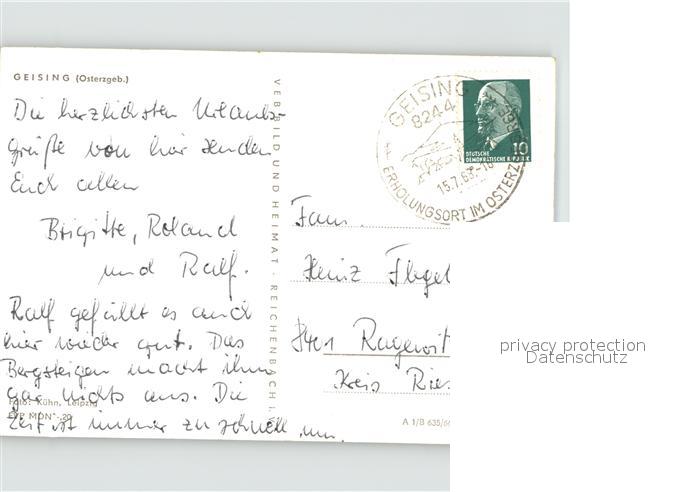 GEISING (Osterzgeb.)
Die herzlichsten Urlaubs-
grüße von hier senden
Euch allen
Brigitte, Roland
und Ralf.
Ralf gefällt es auch
hier wieder gut. Das
Bergsteigen macht ihm
gar nichts aus. Die
Zeit ist immer zu schnell um.
Foto: Kühn, Leipzig
EVP MDN -,20
VEB BILD UND HEIMAT · REICHENBACH I.
GEISING
8244
15.7.68.-18
ERHOLUNGSORT IM OSTERZGEBIRGE
DEUTSCHE
DEMOKRATISCHE REPUBLIK
10
Fam.
Heinz Flegel
8401 Ragewit
Kreis Ries
A 1/B 635/66
privacy protection
Datenschutz